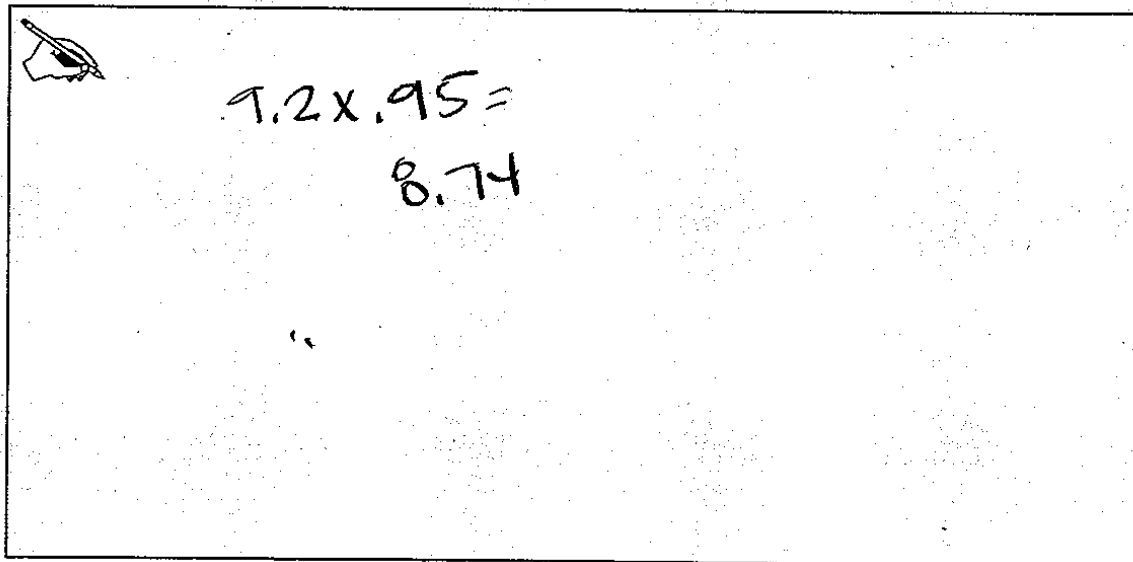 9.2x.95=
8.74